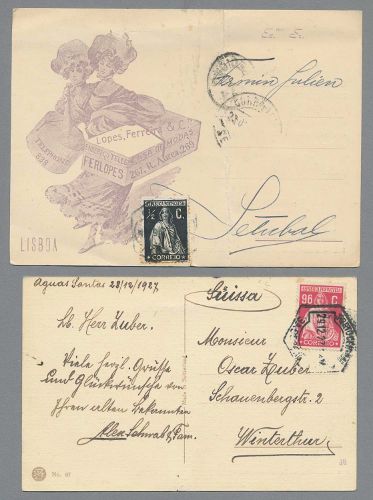 Lopes, Ferreira & C.
CASA DE MODAS
FERLOPES
267, R. Aurea, 269
TELEPHONE
LISBOA
½ C.
CORREIO
Setubal
Aguas Santas 28/12/1927
Lb. Herr Zuber.
Viele herzl. Grüsse
und Glückwünsche von
Ihren alten Bekannten
Alex Schwab & Fam.
No. 61
Suissa
96 C.
CORREIO
Monsieur
Oscar Zuber
Schauenbergstr. 2
Winterthur